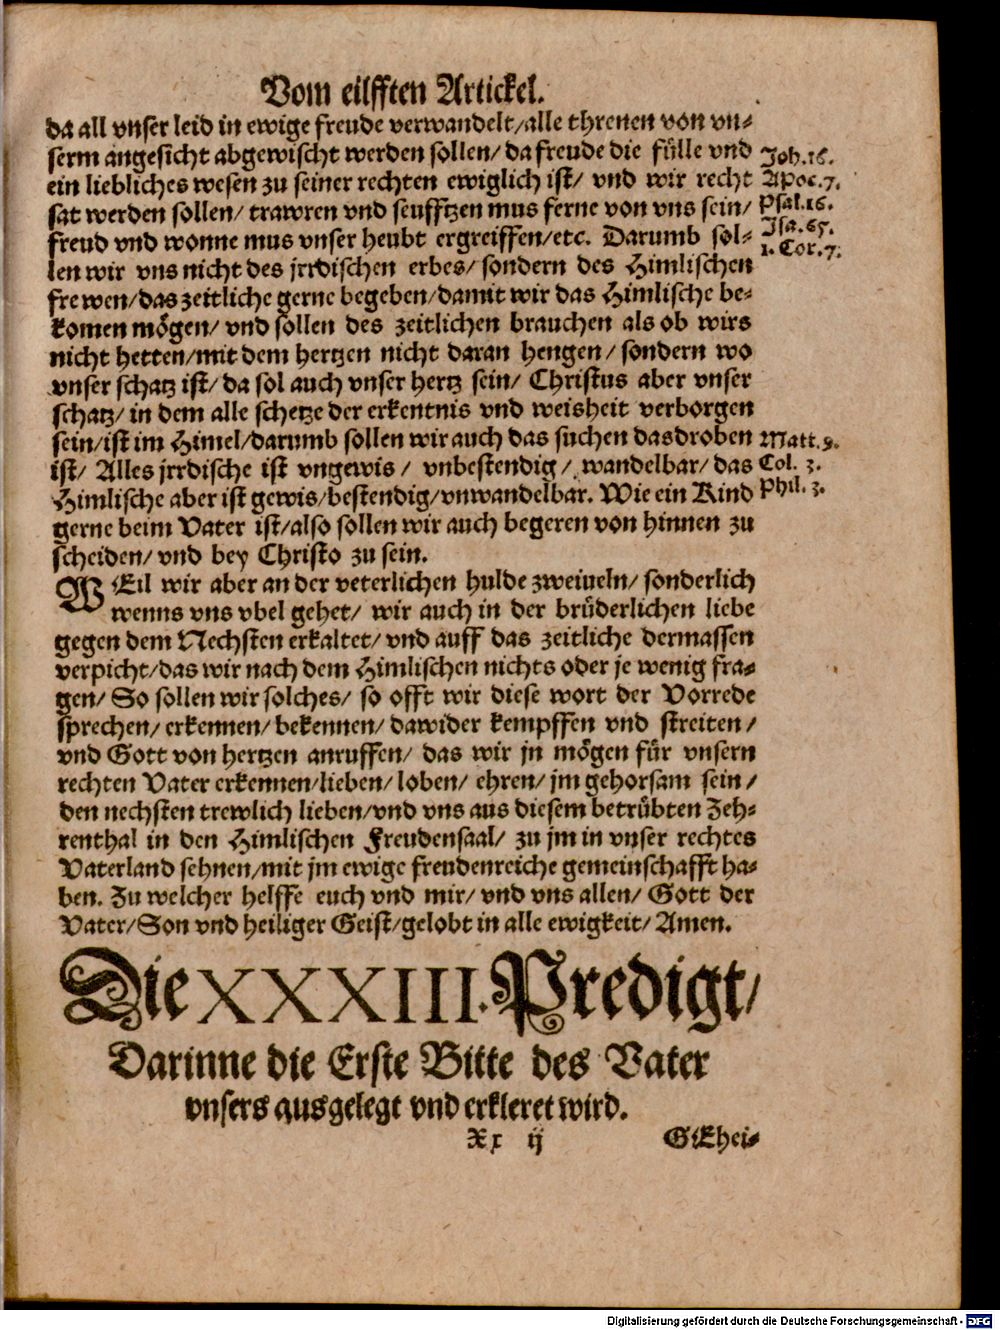 Vom eilfften Artickel.
da all vnser leid in ewige freude verwandelt/alle threnen von vn⸗
serm angesicht abgewischt werden sollen/ da freude die fülle vnd
ein liebliches wesen zu seiner rechten ewiglich ist/ vnd wir recht
sat werden sollen/ trawren vnd seufftzen mus ferne von vns sein/
freud vnd wonne mus vnser heubt ergreiffen/etc. Darumb sol⸗
len wir vns nicht des jrrdischen erbes/ sondern des Himlischen
frewen/das zeitliche gerne begeben/damit wir das Himlische be⸗
komen mögen/ vnd sollen des zeitlichen brauchen als ob wirs
nicht hetten/mit dem hertzen nicht daran hengen/ sondern wo
vnser schatz ist/ da sol auch vnser hertz sein/ Christus aber vnser
schatz/ in dem alle schetze der erkentnis vnd weisheit verborgen
sein/ist im Himel/darumb sollen wir auch das suchen das droben
ist/ Alles jrrdische ist vngewis/ vnbestendig/ wandelbar/ das
Himlische aber ist gewis/bestendig/vnwandelbar. Wie ein Kind
gerne beim Vater ist/also sollen wir auch begeren von hinnen zu
scheiden/ vnd bey Christo zu sein.
Joh.16.
Apoc.7.
Psal.16.
Isa.65.
1. Cor.7.
Matt. 9.
Col. 3.
Phil. 3.
WEil wir aber an der veterlichen hulde zweiueln/ sonderlich
wenns vns vbel gehet/ wir auch in der brüderlichen liebe
gegen dem Nechsten erkaltet/ vnd auff das zeitliche dermassen
verpicht/das wir nach dem Himlischen nichts oder je wenig fra⸗
gen/ So sollen wir solches/ so offt wir diese wort der Vorrede
sprechen/ erkennen/ bekennen/ dawider kempffen vnd streiten/
vnd Gott von hertzen anruffen/ das wir jn mögen für vnsern
rechten Vater erkennen/lieben/ loben/ ehren/ jm gehorsam sein/
den nechsten trewlich lieben/vnd vns aus diesem betrübten Zeh⸗
renthal in den Himlischen Freudensaal/ zu jm in vnser rechtes
Vaterland sehnen/mit jm ewige freudenreiche gemeinschafft ha⸗
ben. Zu welcher helffe euch vnd mir/ vnd vns allen/ Gott der
Vater/Son vnd heiliger Geist/gelobt in alle ewigkeit/ Amen.
Die XXXIII. Predigt/
Darinne die Erste Bitte des Vater
vnsers ausgelegt vnd erkleret wird.
Xx ij
GEhei⸗
Digitalisierung gefördert durch die Deutsche Forschungsgemeinschaft - DFG